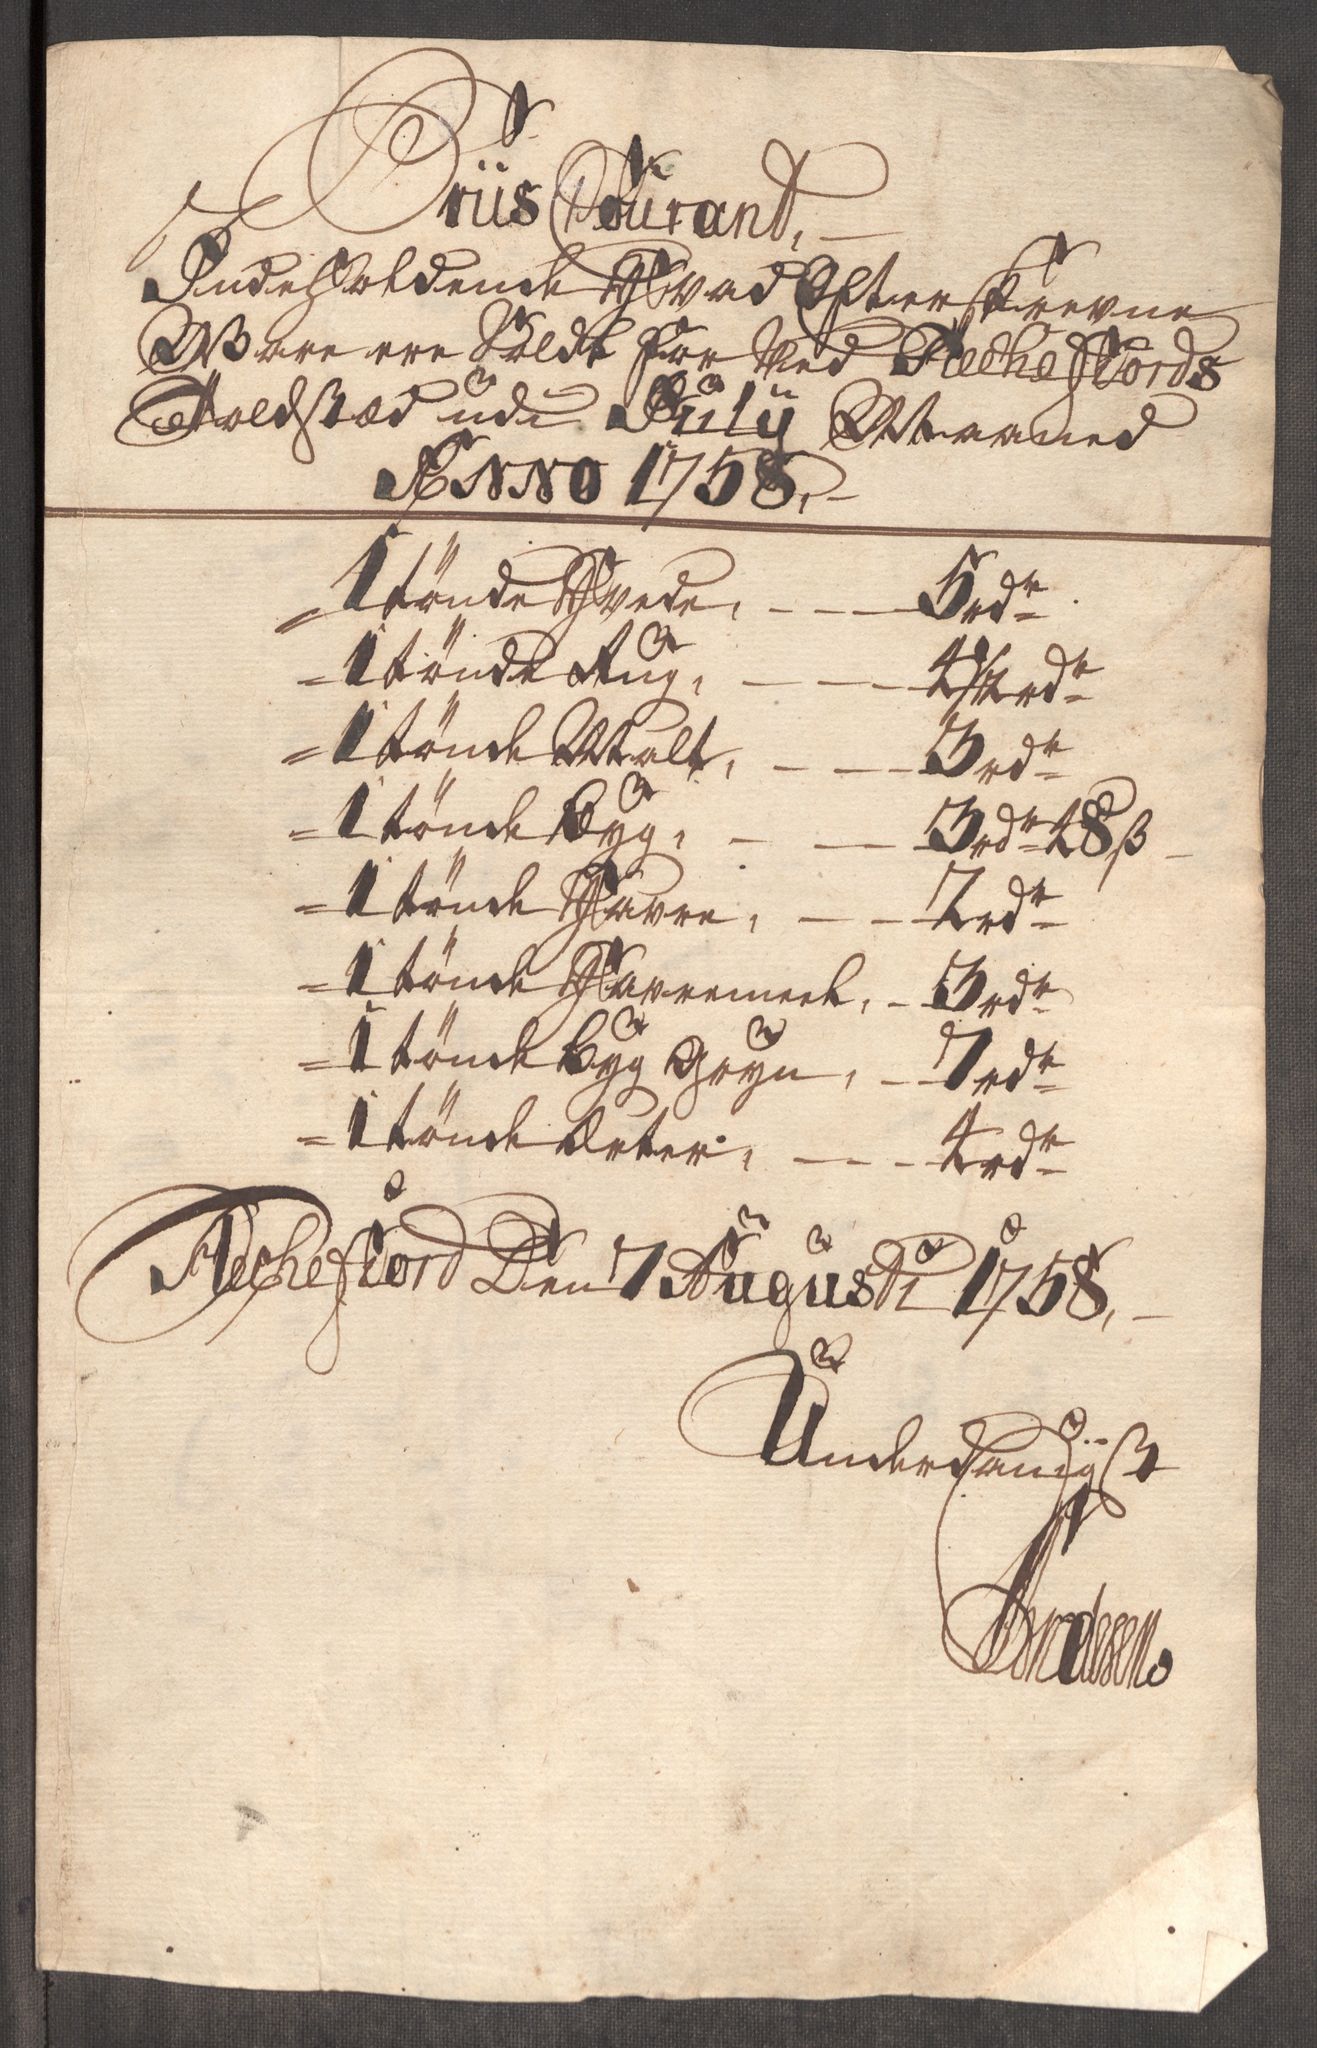 Priis Courant,
Indeholdende Hvad Efterskrevne
Ware ere Soldt for ved Flechefiords
Toldstæd udi July Maaned
ANNO 1758,
1 tönde Hvede, 5 rdr
1 tönde Rug, 4 1/2 rdr
1 tönde Malt, 3 rdr
1 tönde byg, 3 rdr 48 ß
1 tönde Havre, 2 rdr
1 tönde Havremeel, 3 rdr
1 tönde byg Gryn, 7 rdr
1 tönde Erter, 4 rdr
Flechefiord Den 7 Augusti 1758,
Underdanigst